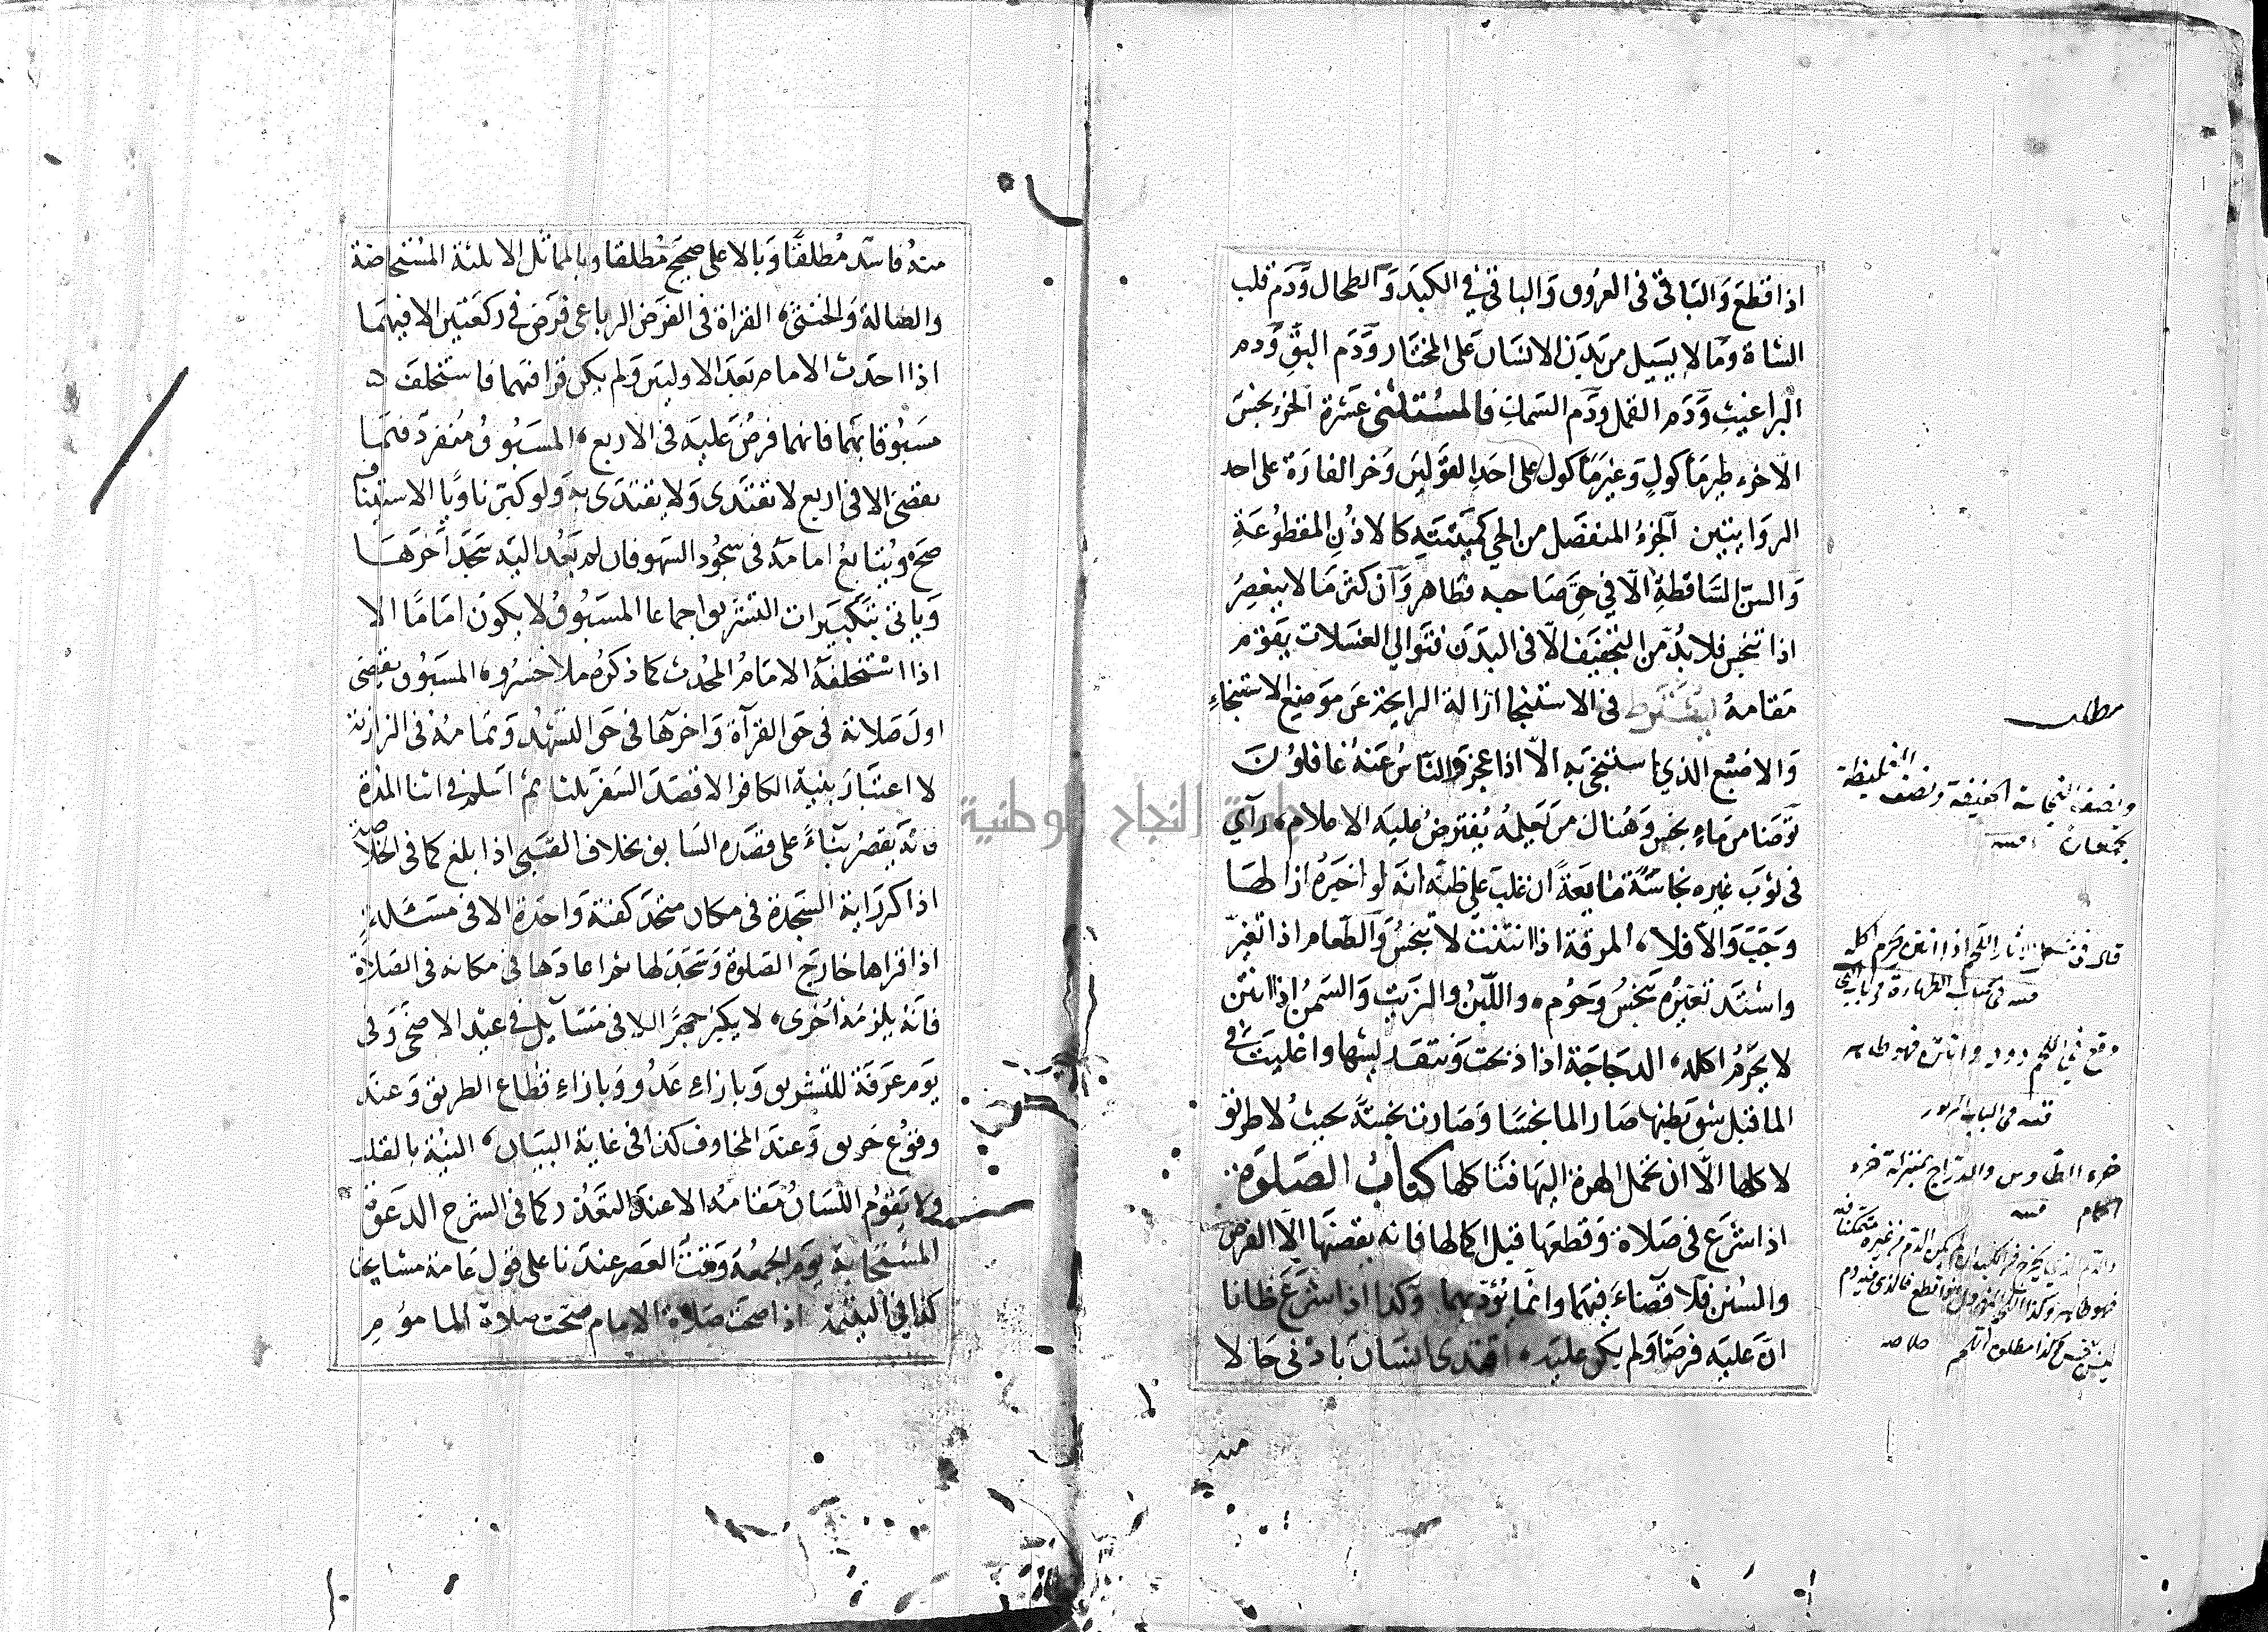 اذا قطع والباقي في العروق والباقي في الكبد والطحال ودم قلب
الشاة وما لا يسيل من بدن الانسان على المختار ودم البق ودم
البراغيث ودم القمل ودم السمك فالمستثنى عشرة الخرء نجس
الا خرء طير مأكول وغير مأكول على احد القولين وخرء الفارة على احد
الروايتين الجزء المنفصل من الحي كميتته كالاذن المقطوعة
والسن الساقطة الا في حق صاحبه فطاهر وان كثر ما لا ينعصر
اذا تنجس فلا بد من التجفيف الا في البدن فتوالي الغسلات يقوم
مقامه يشترط في الاستنجا ازالة الرايحة عن موضع الاستنجاء
والاصبع الذي استنجى به الا اذا عجز والناس عنه غافلون
توضا من ماء نجس وهناك من يعلمه يفترض عليه الاعلام، رآى
في ثوب غيره نجاسة مانعة ان غلب على ظنه انه لو اخبره ازالها
وجب والا فلا، المرقة اذا انتنت لا تنجس والطعام اذا تغير
واشتد تغيره تنجس وحرم، واللبن والزيت والسمن اذا انتن
لا يحرم اكله، الدجاجة اذا ذبحت ونتف ريشها واغليت في
الما قبل شق بطنها صار الما نجسا وصارت نجسة بحيث لا طريق
لاكلها الا ان تحمل الهرة اليها فتاكلها كتاب الصلوة
اذا شرع في صلاة وقطعها قبل اكمالها فانه يقضيها الا الفرض
والسنن فلا قضاء فيهما وانما يؤديهما وكذا اذا شرع ظانا
ان عليه فرضا ولم يكن عليه، اقتدى انسان بادنى حالا
منه
مطلب
ونصف النجاسة الخفيفة ونصف الغليظة
يجمعان
قال في مشكل الاثار اللحم اذا انتن يحرم اكله
وقع في اللحم دود
خرء الطاوس والدراج بمنزلة خرء
منه فاسد مطلقا وبالاعلى صحيح مطلقا وبالمماثل الا ثلثة المستحاضة
والضالة والخنثى، القراة في الفرض الرباعي فرض في ركعتين الا فيهما
اذا احدث الامام بعد الاوليين ولم يكن قرا فيهما فاستخلف
مسبوقا بهما فانهما فرض عليه في الاربع، المسبوق منفرد فيما
يقضي الا في اربع لا يقتدى ولا يقتدى به ولو كبر ناويا الاستيناف
صح ويتابع امامه في سجود السهو فان لم يعد اليه سجد آخرها
وياتي بتكبيرات التشريق اجماعا المسبوق لا يكون اماما الا
اذا استخلفه الامام المحدث كما ذكره ملا خسرو، المسبوق يقضي
اول صلاته في حق القرآة واخرها في حق التشهد وتمامه في البزازية
لا اعتبار بنية الكافر الا قصد السفر ثلثا ثم اسلم في اثنا المدة
فانه يقصر بناء على قصده السابق بخلاف الصبي اذا بلغ كما في الخلاصة
اذا كرر اية السجدة في مكان متحد كفته واحدة الا في مسئلة
اذا قراها خارج الصلوة وسجد لها ثم اعادها في مكانه في الصلاة
فانه يلزمه اخرى، لا يكبر جهرا الا في مسآيل في عيد الاضحى وفي
يوم عرفة للتشريق وبازاء عدو وبازاء قطاع الطريق وعند
وقوع حريق وعند المخاوف كذا في غاية البيان، النية بالقلب
ولا يقوم اللسان مقامه الا عند التعذر كما في الشرح الدعوة
المستجابة يوم الجمعة وقت العصر عندنا على قول عامة مشايخنا
كذا في اليتيمة اذا صحت صلاة الامام صحت صلاة الماموم
جامعة النجاح الوطنية